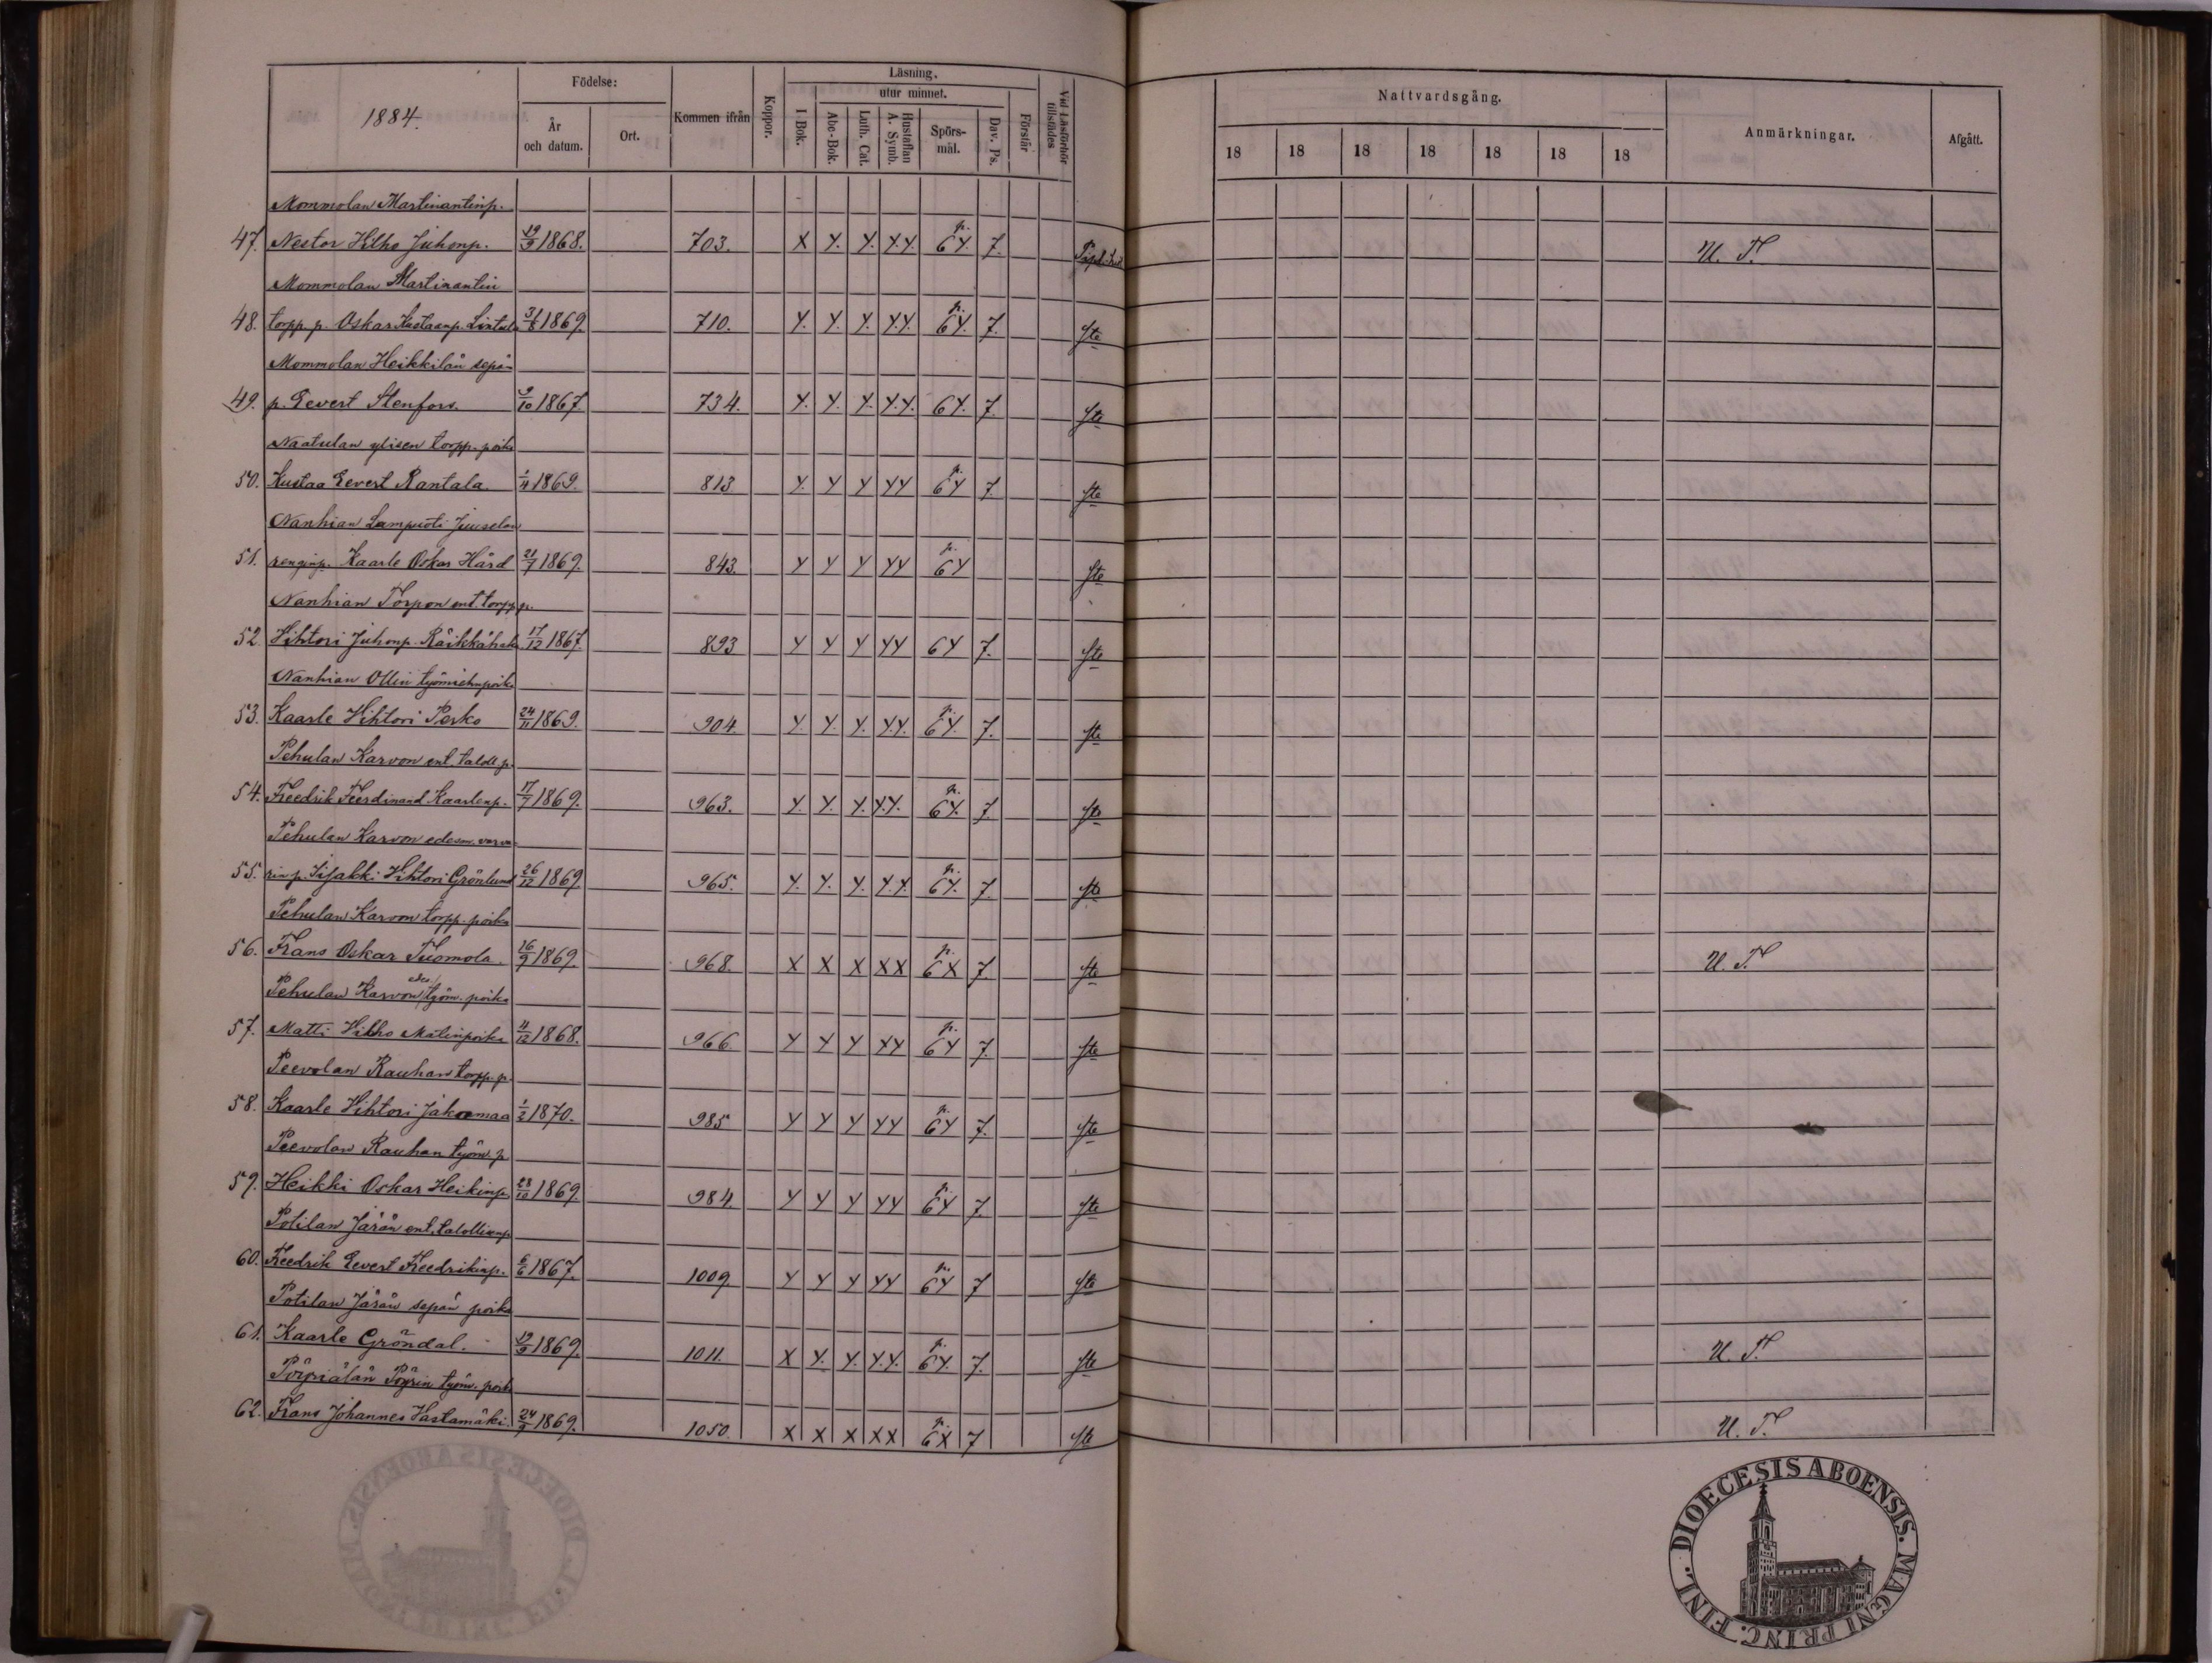 1884.
Födelse:
År och datum.
Ort.
Kommen ifrån
Koppor.
Läsning.
utur minnet.
I Bok.
Abc-Bok.
Luth. Cat.
Hustaflan A. Symb.
Spörs-mål.
Dav. Ps.
Förstår
Vid Läsförhör tillstädes
Nattvardsgång.
18 18 18 18 18 18 18
Anmärkningar.
Afgått.
Mommolan Martinantinp.
47. Nestor Vilho Juhonp. 19/9 1868. 703. X Y. Y. Y.Y. p. 6Y. 7. U. T.
Mommolan Martinantin
48. torpp. p. Oskar Kustaanp. Lintula 31/8 1869. 710. Y. Y. Y. Y.Y. p. 6Y. 7. ste
Mommolan Heikkilän sepän
49. p. Eevert Stenfors. 9/10 1867. 734. Y. Y. Y. Y.Y. 6Y. 7. ste
Naatulan ylisen torpp. poika
50. Kustaa Eevert Rantala. 1/4 1869. 813 Y. Y Y YY p. 6Y 7. ste
Nanhian Lampuoti Juuselan
51. renginp. Kaarle Oskar Hård 21/7 1869. 843. Y Y Y YY p. 6Y ste
Nanhian Torpon ent. torpp. p.
52 Vihtori Juhonp. Räikkähaka 17/12 1867. 893 Y Y Y YY 6Y 7. ste
Nanhian Ollin työmiehenpoika
53. Kaarle Vihtori Perko 24/11 1869. 904. Y. Y. Y. Y.Y. p. 6Y. 7. ste
Pehulan Karvon ent. taloll. p.
54. Freedrik Feerdinand Kaarlenp. 17/7 1869. 963. Y. Y. Y. Y.Y. p. 6Y. 7. ste
Pehulan Karvon edesm. vava-
55. rin p. Iisakki Vihtori Grönlund 26/12 1869. 965. Y. Y. Y. Y.Y. p. 6Y. 7. ste
Pehulan Karvon torpp. poika
56. Frans Oskar Tuomola. 16/9 1869. 968. X X X XX p. 6X 7. ste U. T.
Pehulan Karvon työm. poika
57. Matti Vilho Matinpoika 4/12 1868. 966 Y Y Y YY p. 6Y 7. ste
Peevolan Rauhan torpp. p.
58. Kaarle Vihtori Jakamaa 1/2 1870. 985 Y Y Y YY p. 6Y 7. ste
Peevolan Rauhan työm. p
59. Heikki Oskar Heikinp. 28/10 1869. 984. Y Y Y YY p. 6Y 7. ste
Potilan Järän ent. talollisenp
60. Freedrik Eevert Freedrikinp. 6/6 1867. 1009 Y Y Y YY p. 6Y 7 ste
Potilan Järän sepän poika
61. Kaarle Gröndal. 19/9 1869. 1011. X Y. Y. Y.Y. p. 6Y. 7. ste U. T.
Pöyriälän Pöyrin työm. poika
62. Frans Johannes Vastamäki. 24/9 1869. 1050. X X X XX p. 6X 7 ste U. T.
DIOECESIS ABOENSIS. MAGNI PRINC. FINL.